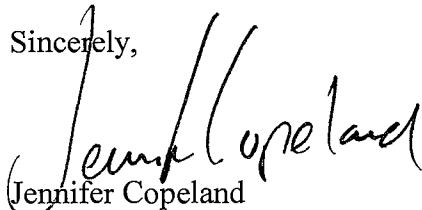 Sincerely,
Jennifer Copeland
Jennifer Copeland